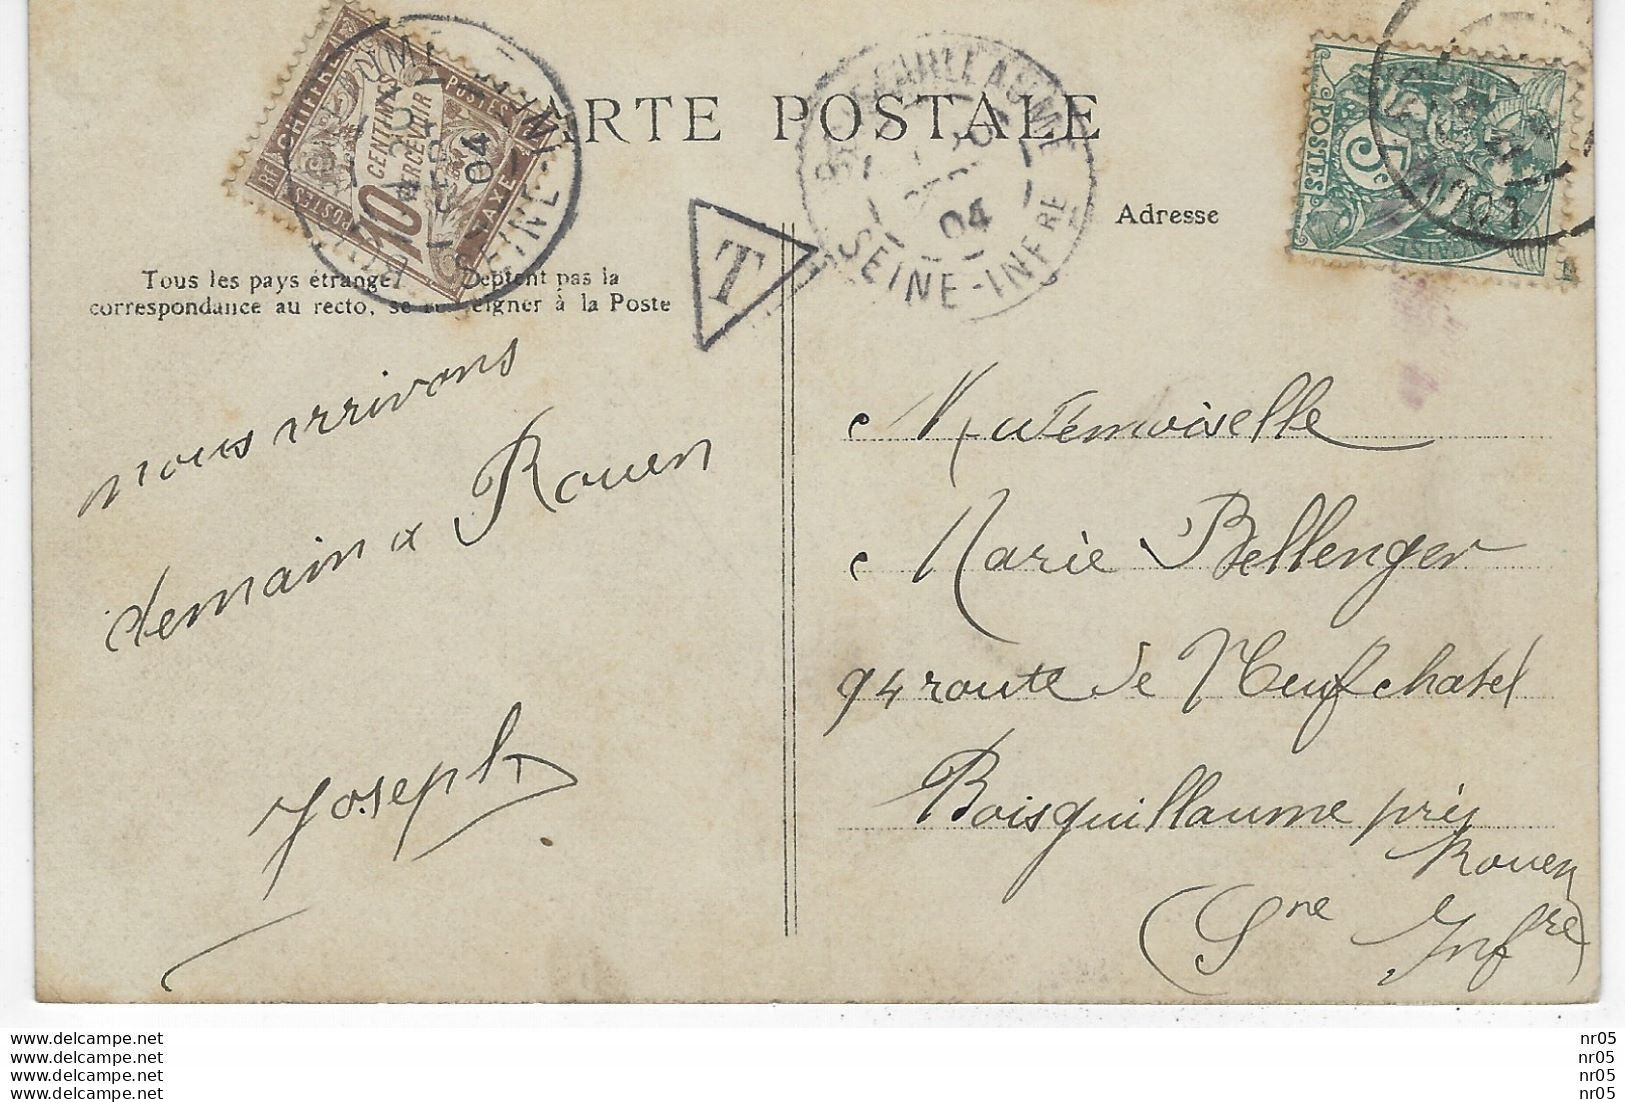 CARTE POSTALE
CHIFFRE
POSTES
10
CENTIMES
PERCEVOIR
TAXE
04
SEINE-INFRE
04
POSTES
5c
T
Adresse
Tous les pays étrangers
correspondance au recto, se
pas la
à la Poste
nous arrivons
demain a Rouen
Joseph
Mademoiselle
Marie Bellenger
94 route de Neufchatel
Boisguillaume près
Rouen
(Sne Infre)
www.delcampe.net
www.delcampe.net
www.delcampe.net
www.delcampe.net
nr05
nr05
nr05
nr05